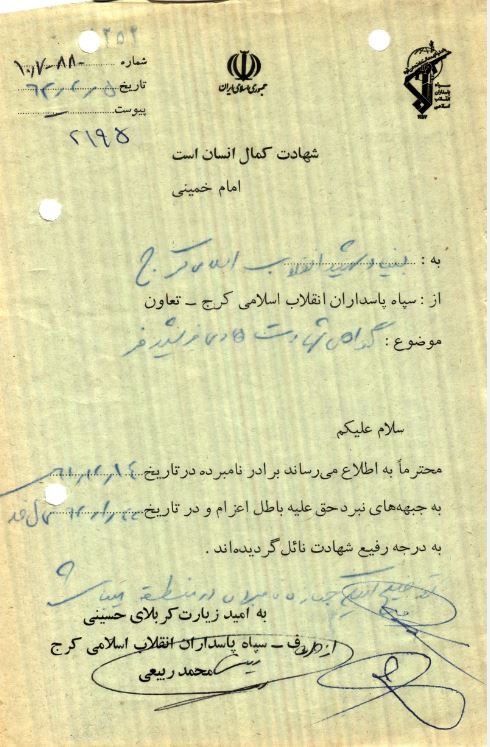 شماره ۸۸۰-۱۰/۷
تاریخ
پیوست
۲۱۹۵
جمهوری اسلامی ایران
سپاه
پاسداران
انقلاب
اسلامی
شهادت کمال انسان است
امام خمینی
به : بنیاد شهید انقلاب اسلامی کرج
از : سپاه پاسداران انقلاب اسلامی کرج – تعاون
موضوع : گواهی شهادت
سلام علیکم
محترماً به اطلاع می‌رساند برادر نامبرده در تاریخ
به جبهه‌های نبرد حق علیه باطل اعزام و در تاریخ
به درجه رفیع شهادت نائل گردیده‌اند .
جنازه نامبرده در منطقه
به امید زیارت کربلای حسینی
از طرف – سپاه پاسداران انقلاب اسلامی کرج
محمد ربیعی